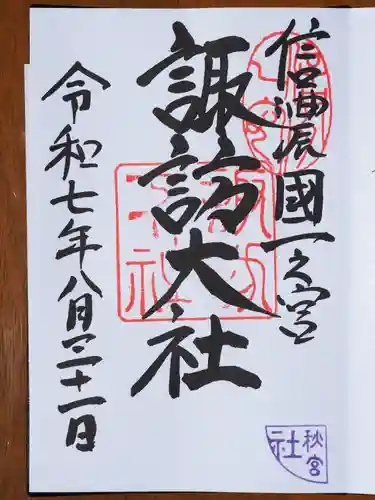 信濃國一之宮
諏訪大社
令和七年八月三十一日
諏訪大社
秋宮
社